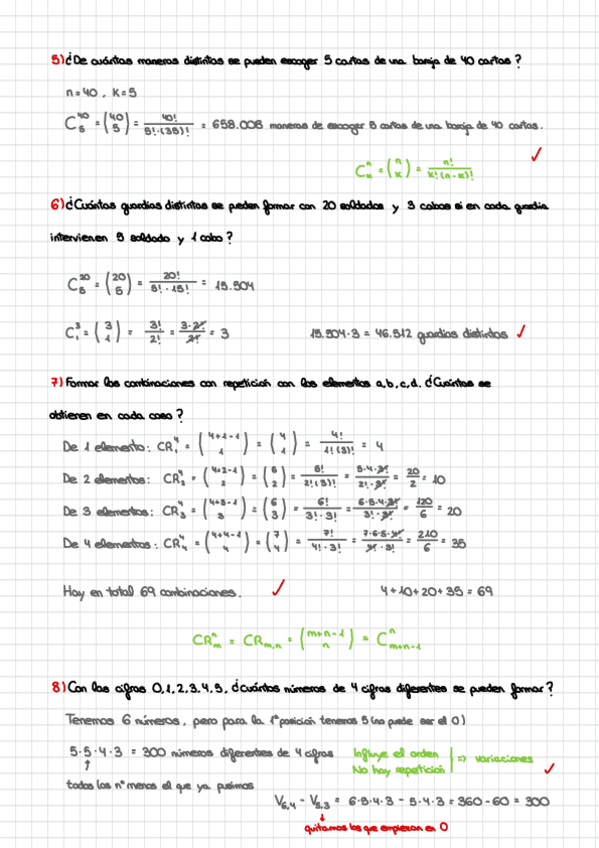 5) ¿De cuántas maneras distintas se pueden escoger 5 cartas de una baraja de 40 cartas?
n=40, K=5
C₅⁴⁰ = (40 5) = 40! / 5!·(35)! = 658.008 maneras de escoger 5 cartas de una baraja de 40 cartas.
Cₖⁿ = (n k) = n! / k!(n-k)!
6) ¿Cuántas guardias distintas se pueden formar con 20 soldados y 3 cabos si en cada guardia
intervienen 5 soldado y 1 cabo?
C₅²⁰ = (20 5) = 20! / 5!·15! = 15.504
C₁³ = (3 1) = 3! / 2! = 3·2! / 2! = 3 15.504·3 = 46.512 guardias distintas
7) Formar las combinaciones con repetición con los elementos a,b,c,d. ¿Cuántas se
obtienen en cada caso?
De 1 elemento: CR₁⁴ = (4+1-1 1) = (4 1) = 4! / 1!(3)! = 4
De 2 elementos: CR₂⁴ = (4+2-1 2) = (5 2) = 5! / 2!(3)! = 5·4·3! / 2!·3! = 20/2 = 10
De 3 elementos: CR₃⁴ = (4+3-1 3) = (6 3) = 6! / 3!·3! = 6·5·4·3! / 3!·3! = 120/6 = 20
De 4 elementos: CR₄⁴ = (4+4-1 4) = (7 4) = 7! / 4!·3! = 7·6·5·4! / 4!·3! = 210/6 = 35
Hay en total 69 combinaciones. 4+10+20+35 = 69
CRₘⁿ = CRₘ,ₙ = (m+n-1 n) = Cⁿₘ₊ₙ₋₁
8) Con las cifras 0,1,2,3,4,5, ¿cuántos números de 4 cifras diferentes se pueden formar?
Tenemos 6 números, pero para la 1ª posición tenemos 5 (no puede ser el 0)
5·5·4·3 = 300 números diferentes de 4 cifras Influye el orden
No hay repetición => variaciones
todos los nº menos el que ya pusimos
V₆,₄ - V₅,₃ = 6·5·4·3 - 5·4·3 = 360-60 = 300
quitamos los que empiezan en 0